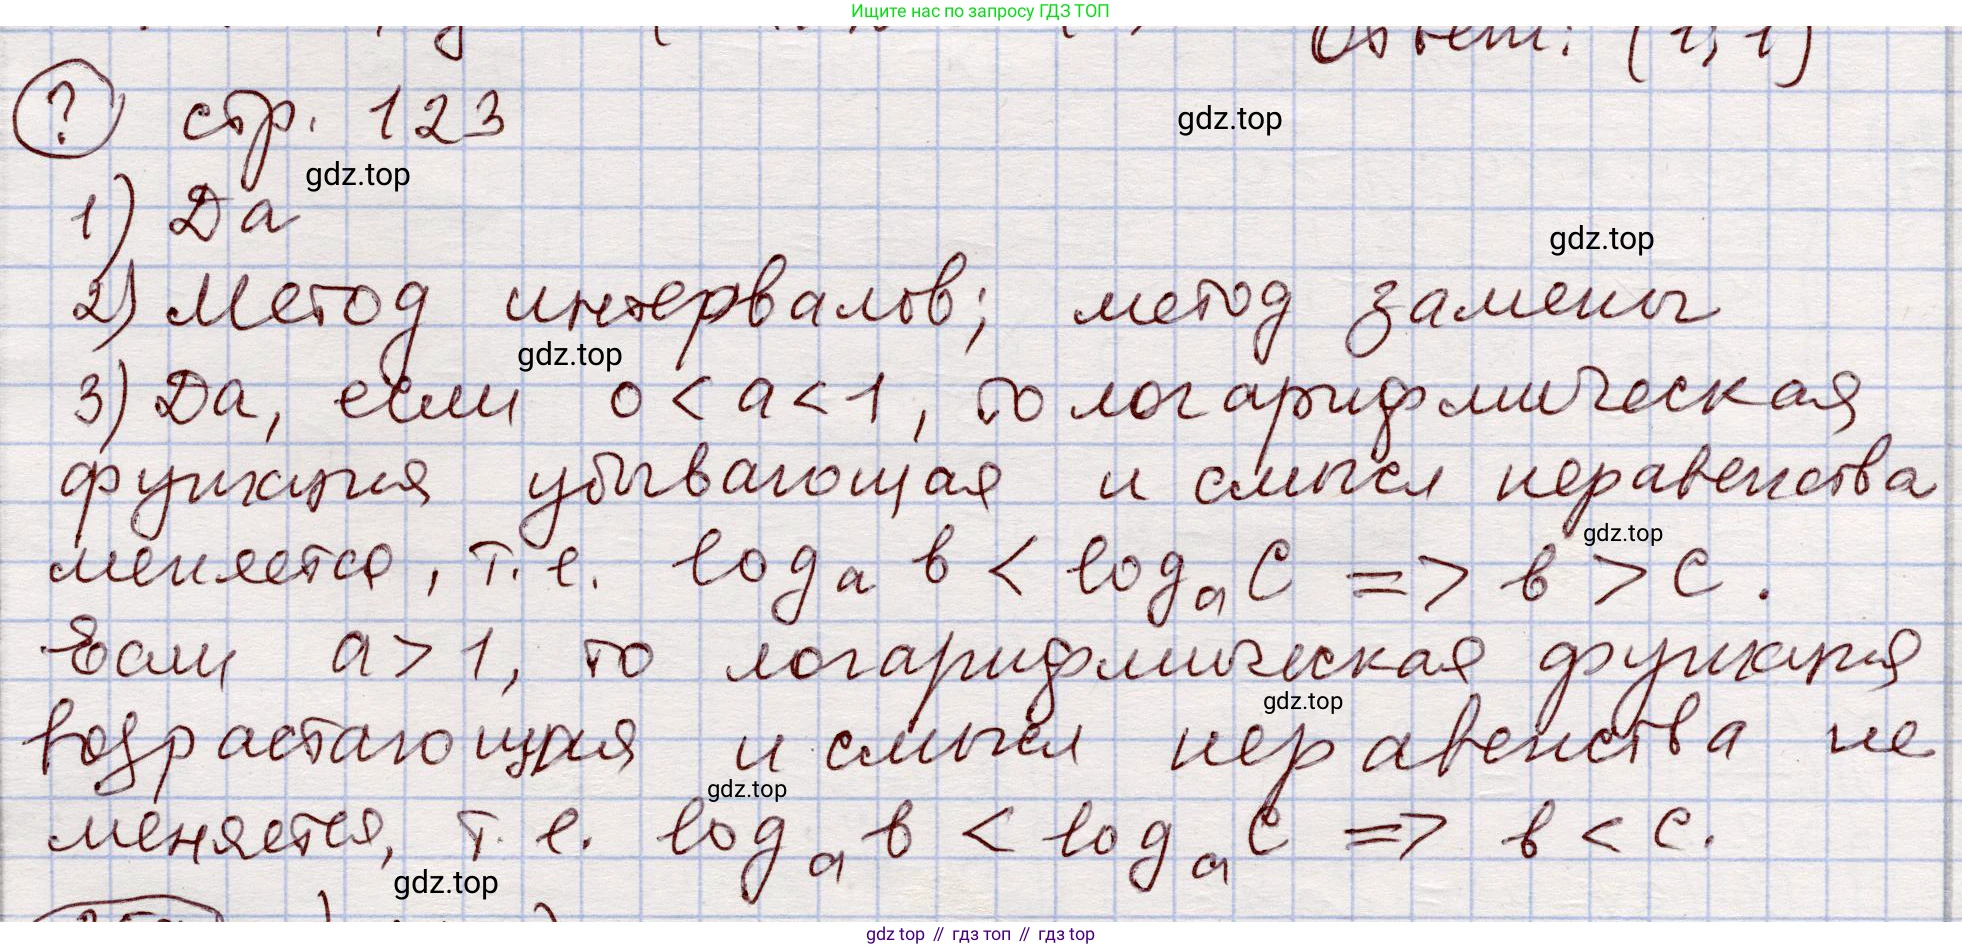 Ищите нас по запросу ГДЗ ТОП
Ответ: (1;1)
? стр. 123
gdz.top
gdz.top
1) Да
gdz.top
2) Метод интервалов; метод замены
gdz.top
3) Да, если 0 < a < 1, то логарифмическая
функция убывающая и смысл неравенства
gdz.top
меняется, т.е. log_a b < log_a c => b > c.
Если a > 1, то логарифмическая функция
gdz.top
возрастающая и смысл неравенства не
gdz.top
меняется, т.е. log_a b < log_a c => b < c.
gdz.top
gdz top // гдз топ // гдз top